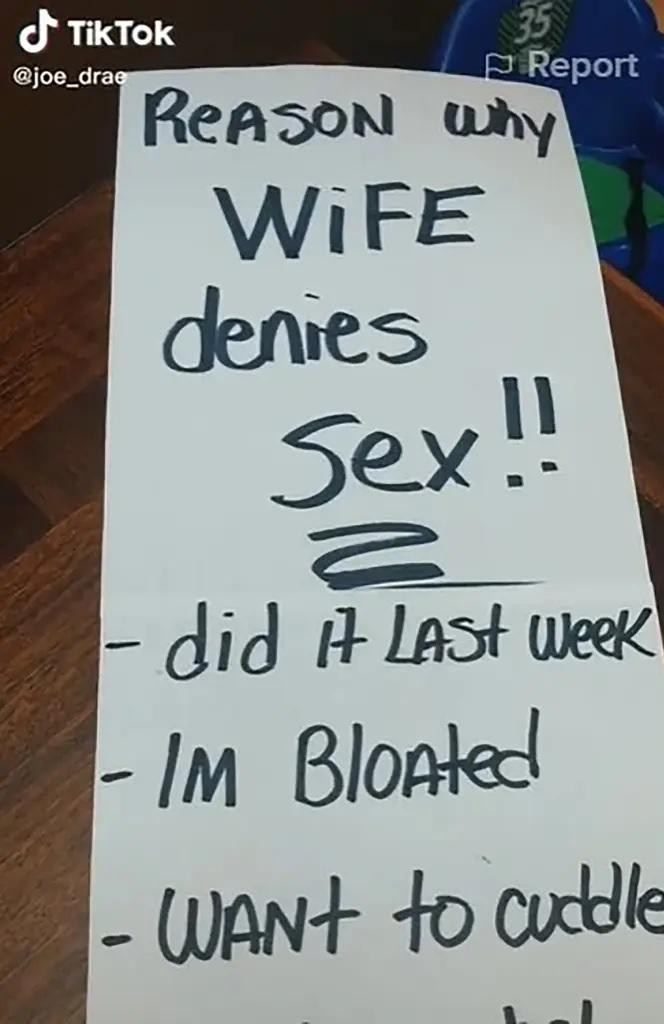 TikTok
@joe_drae
35
Report
REASON why
WiFE
denies
Sex!!
- did iT LAST week
- IM BloAted
- WANT to cuddle